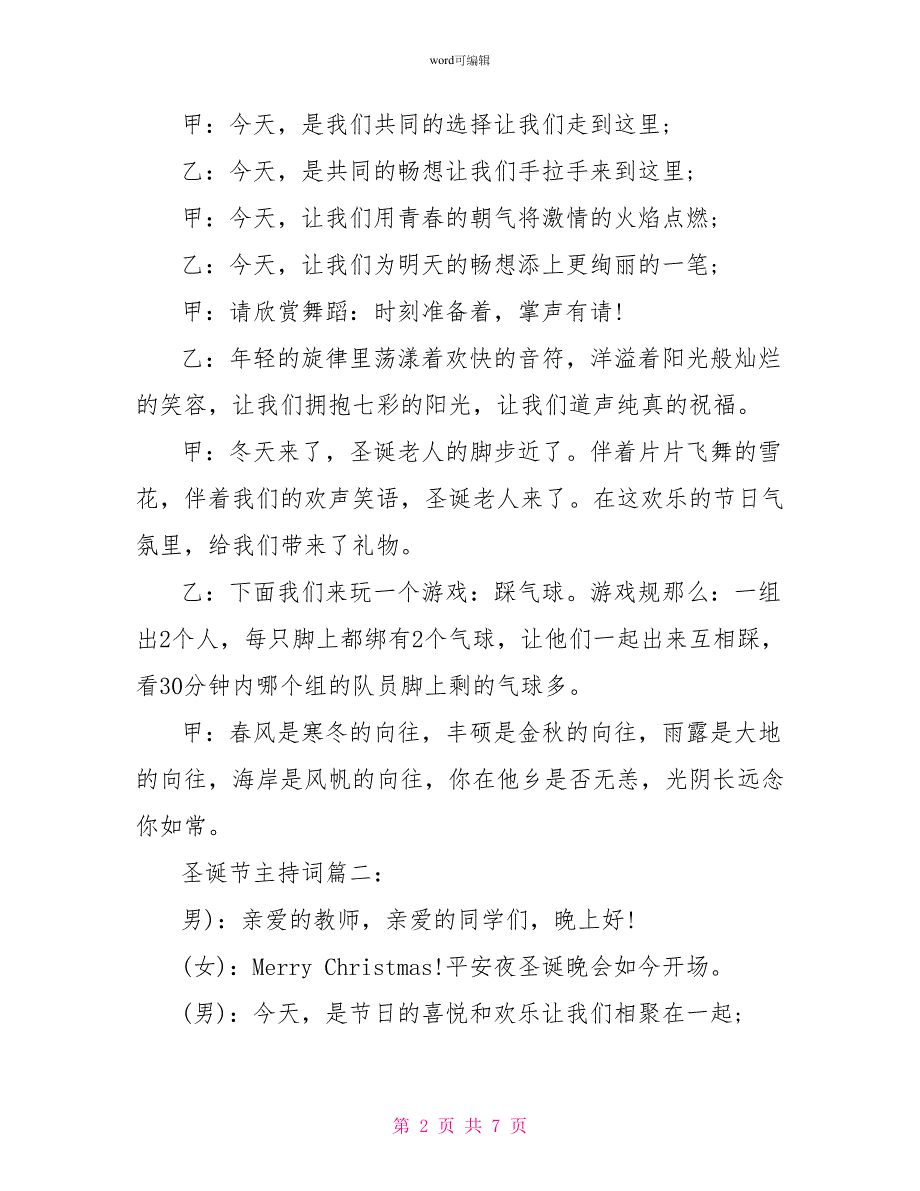 word可编辑
甲：今天，是我们共同的选择让我们走到这里;
乙：今天，是共同的畅想让我们手拉手来到这里;
甲：今天，让我们用青春的朝气将激情的火焰点燃;
乙：今天，让我们为明天的畅想添上更绚丽的一笔;
甲：请欣赏舞蹈：时刻准备着，掌声有请!
乙：年轻的旋律里荡漾着欢快的音符，洋溢着阳光般灿烂
的笑容，让我们拥抱七彩的阳光，让我们道声纯真的祝福。
甲：冬天来了，圣诞老人的脚步近了。伴着片片飞舞的雪
花，伴着我们的欢声笑语，圣诞老人来了。在这欢乐的节日气
氛里，给我们带来了礼物。
乙：下面我们来玩一个游戏：踩气球。游戏规那么：一组
出2个人，每只脚上都绑有2个气球，让他们一起出来互相踩，
看30分钟内哪个组的队员脚上剩的气球多。
甲：春风是寒冬的向往，丰硕是金秋的向往，雨露是大地
的向往，海岸是风帆的向往，你在他乡是否无恙，光阴长远念
你如常。
圣诞节主持词篇二：
男)：亲爱的教师，亲爱的同学们，晚上好!
(女)：Merry Christmas!平安夜圣诞晚会如今开场。
(男)：今天，是节日的喜悦和欢乐让我们相聚在一起;
第 2 页 共 7 页